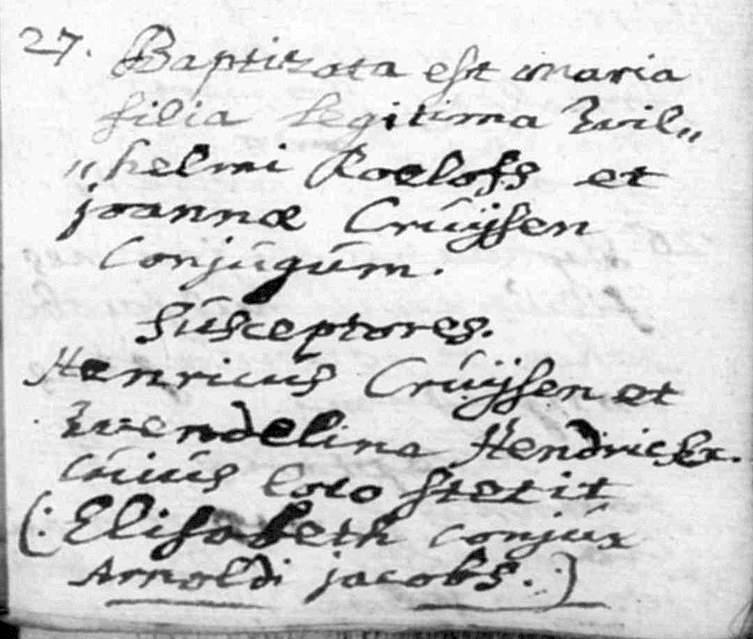 27. Baptizata est maria
filia Legitima Wil„
„helmi Roelofs et
joannæ Crúÿsen
Conjúgúm.
Súsceptores.
Henricús Crúÿsen et
Wendelina Hendrickx.
cúiús loco stetit
(: Elisabeth conjúx
Arnoldi jacobs. :)